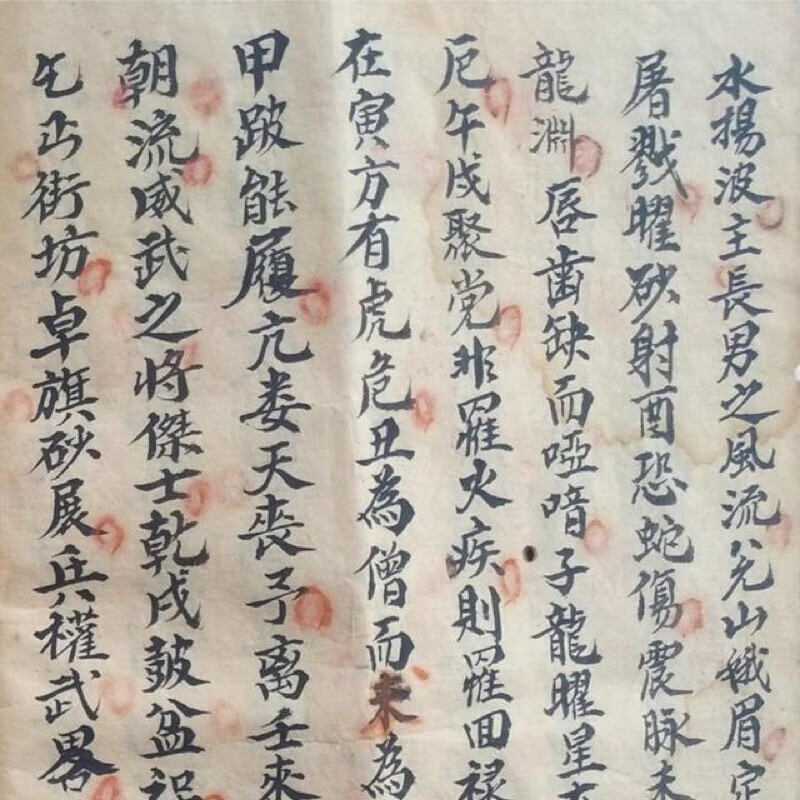 水揚波主長男之風流兌山纖眉定
屠戮曜砂射酉恐蛇傷震脉未
龍淵唇齒缺而啞喑子龍曜星
厄午戌聚党非羅火疾則羅回祿
在寅方有虎危丑為僧而未為
甲跛能履亢娄天喪予离壬來
朝流威武之将傑士乾戌鼓盆
街坊卓旗砂展兵權武畧